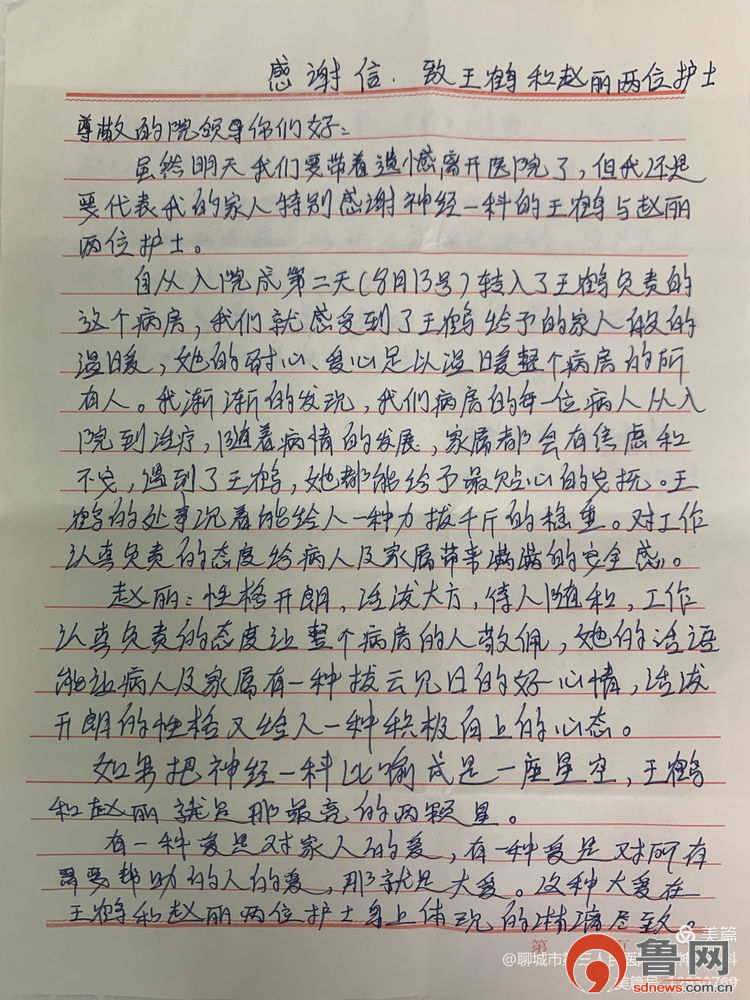 感谢信.致王鹤和赵丽两位护士
尊敬的院领导你们好：
虽然明天我们要带着遗憾离开医院了，但我还是
要代表我的家人特别感谢神经一科的王鹤与赵丽
两位护士。
自从入院成第二天（8月13号）转入了王鹤负责的
这个病房，我们就感受到了王鹤给予的家人般的
温暖，她的耐心、爱心足以温暖整个病房的所
有人。我渐渐的发现，我们病房的每一位病人从入
院到治疗，随着病情的发展，家属都会有焦虑和
不安，遇到了王鹤，她都能给予最贴心的安抚。王
鹤的处事沉着能给人一种力拔千斤的稳重。对工作
认真负责的态度给病人及家属带来满满的安全感。
赵丽：性格开朗，活泼大方，待人随和，工作
认真负责的态度让整个病房的人敬佩，她的话语
能让病人及家属有一种拔云见日的好心情，活泼
开朗的性格又给人一种积极向上的心态。
如果把神经一科比喻成是一座星空，王鹤
和赵丽就是那最亮的两颗星。
有一种爱是对家人的爱，有一种爱是对所有
需要帮助的人的爱，那就是大爱。这种大爱在
王鹤和赵丽两位护士身上体现的淋漓尽致。
第 页
美篇
@聊城市第三人民医院
科
美篇号
769
鲁网
sdnews.com.cn